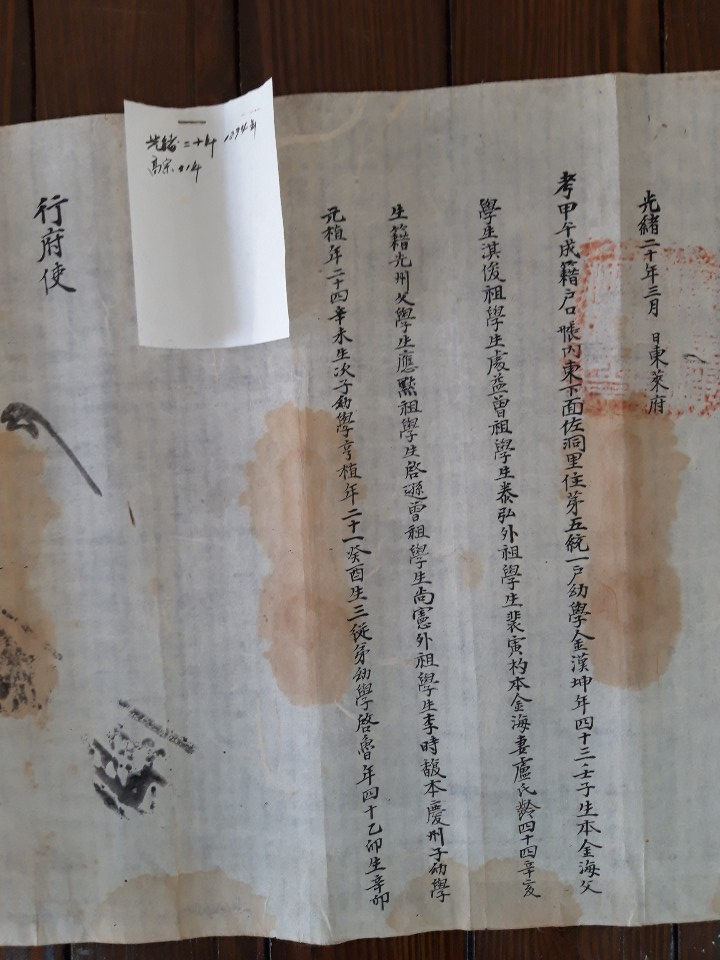 光緖二十年三月 日東萊府
考甲午成籍戶口帳內東下面佐洞里住第五統一戶幼學金漢坤年四十三壬子生本金海父
學生淇俊祖學生處益曾祖學生泰弘外祖學生裴寅杓本金海妻盧氏齡四十四辛亥
生籍光州父學生應點祖學生啓遜曾祖學生尙憲外祖學生李時馥本慶州子幼學
元植年二十四辛未生次子幼學亨植年二十一癸酉生三從弟幼學啓魯年四十乙卯生辛卯
行府使
光緖二十年 1894年
高宗31年